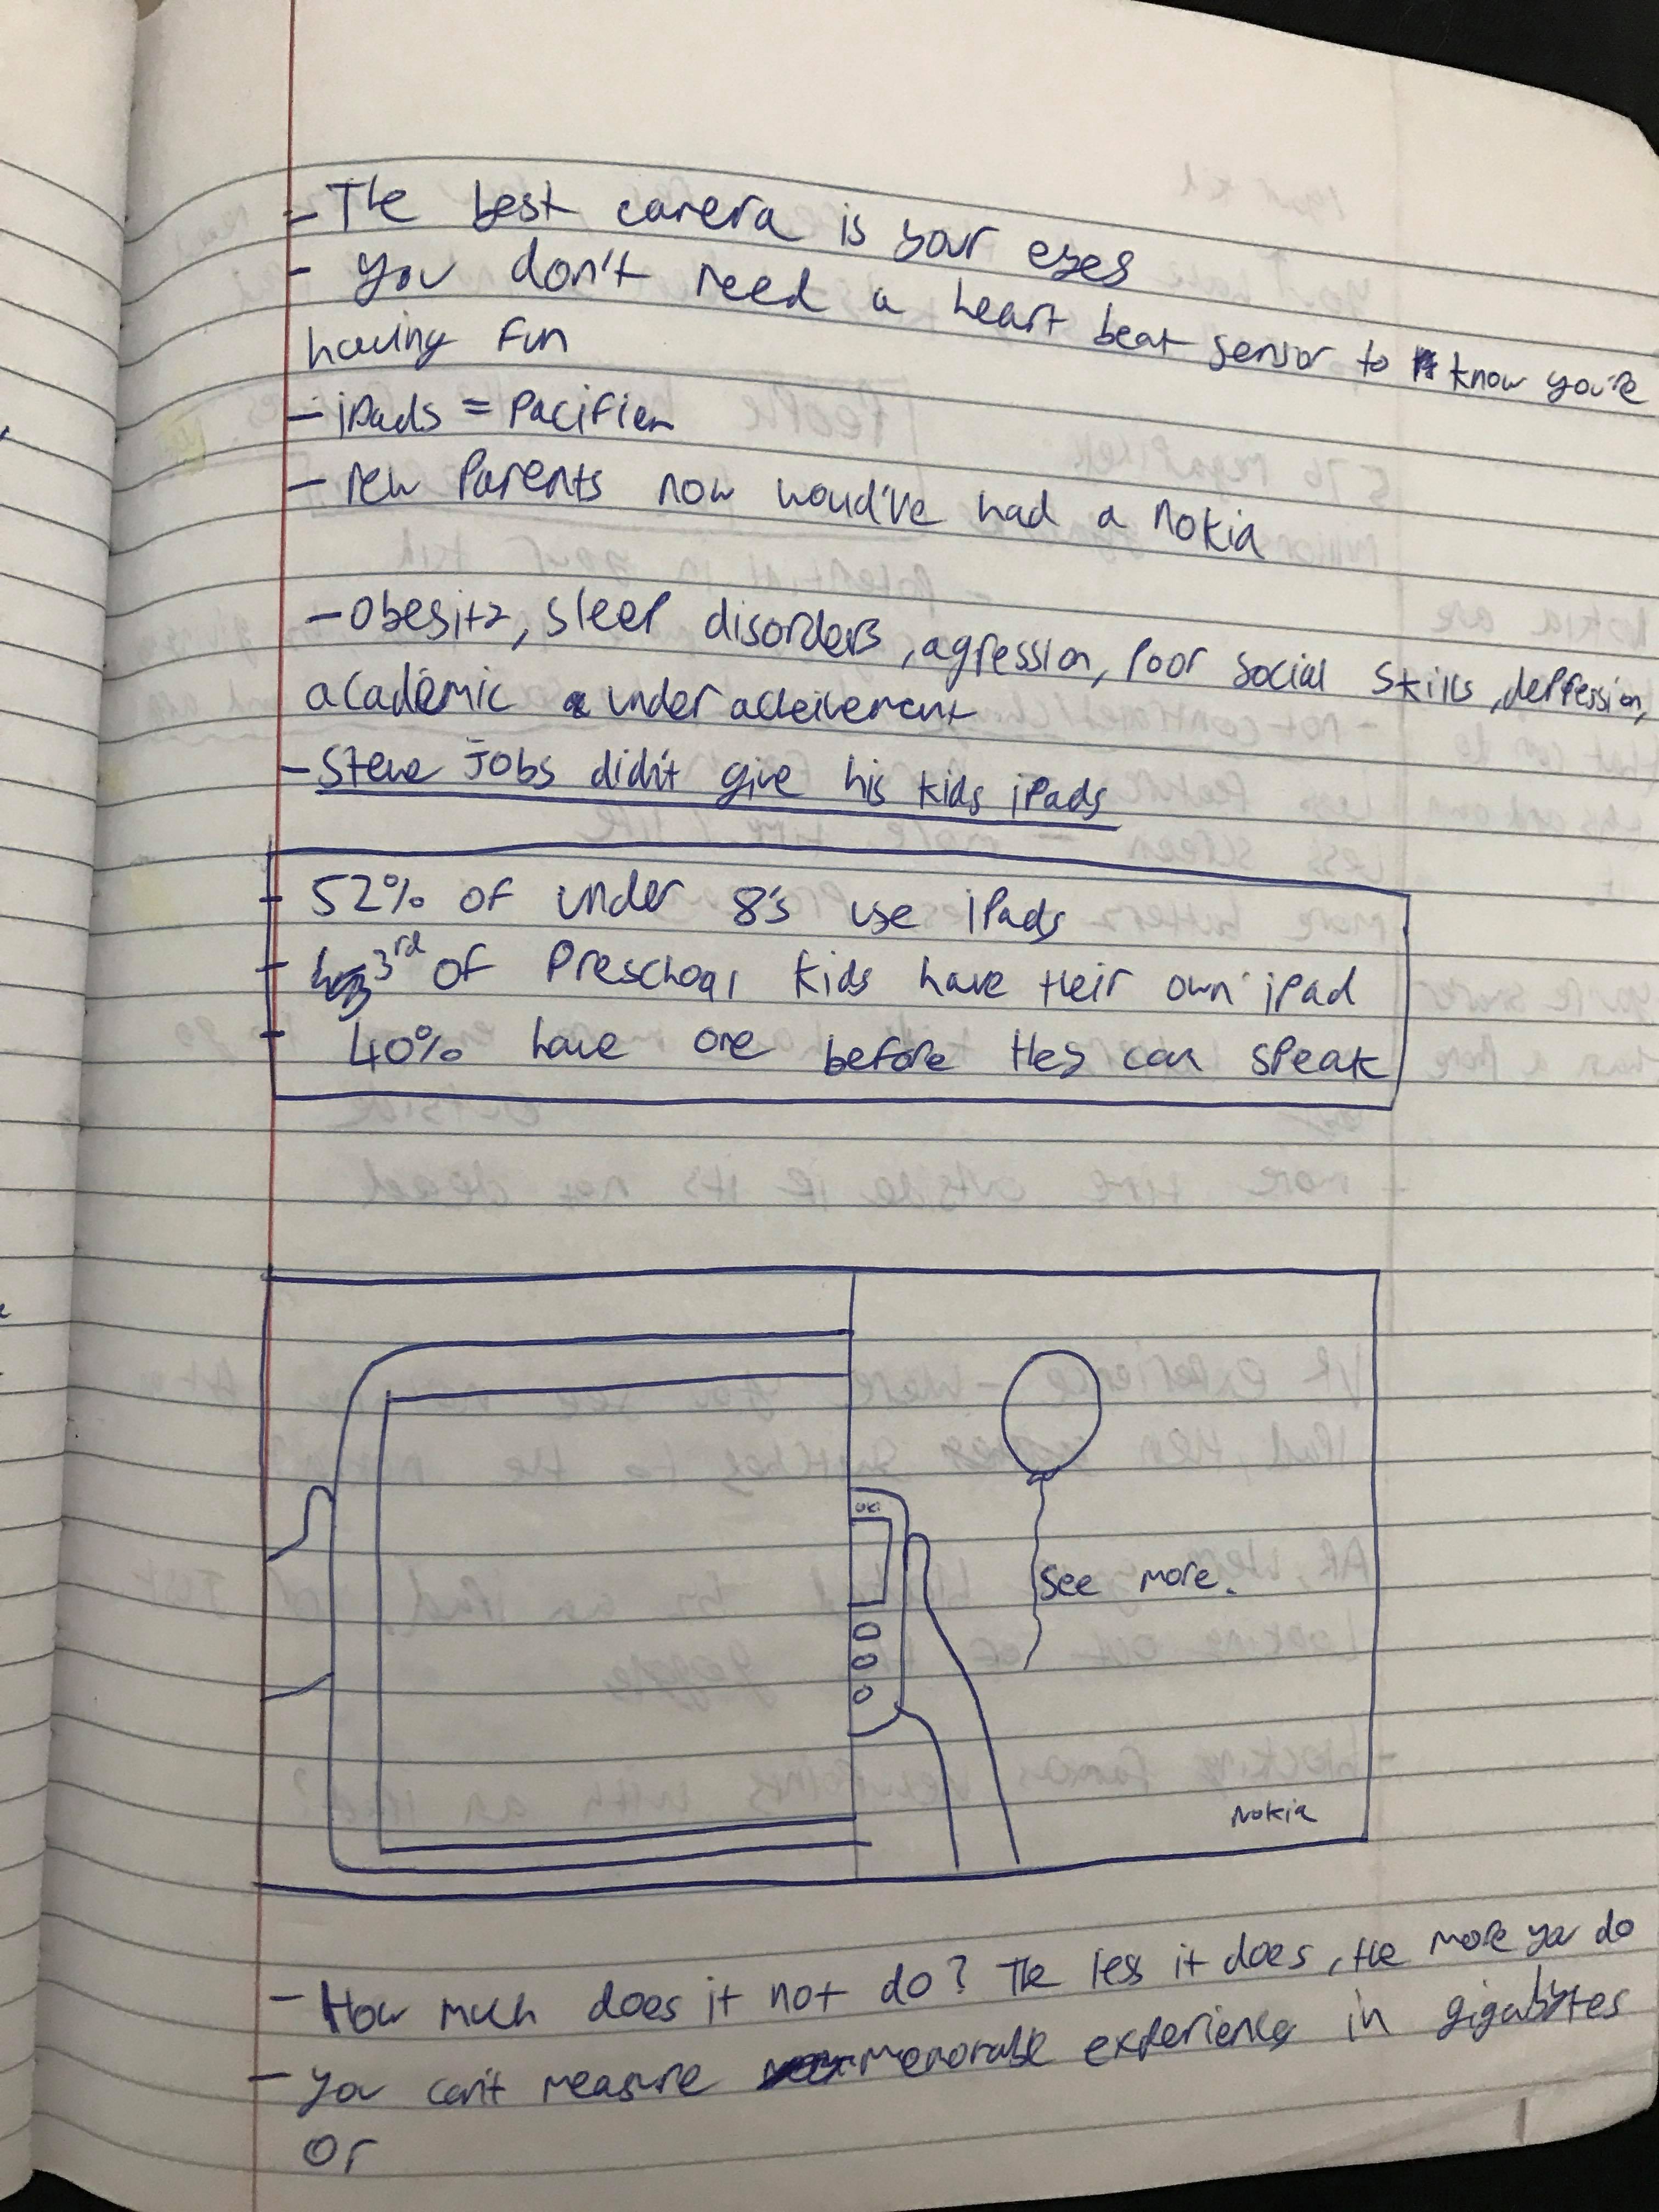 - The best camera is your eyes
- you don't need a heart beat sensor to know you're
having fun
- ipads = pacifier
- new parents now woud've had a nokia
- obesity, sleep disorders, agression, poor social skills, depression,
academic under acheivement
- Steve Jobs didn't give his kids ipads
- 52% of under 8's use ipads
- 3rd of preschool kids have their own ipad
- 40% have one before they can speak
oki
see more.
Nokia
- How much does it not do? The less it does, the more you do
- you can't measure memorable experience in gigabytes
or